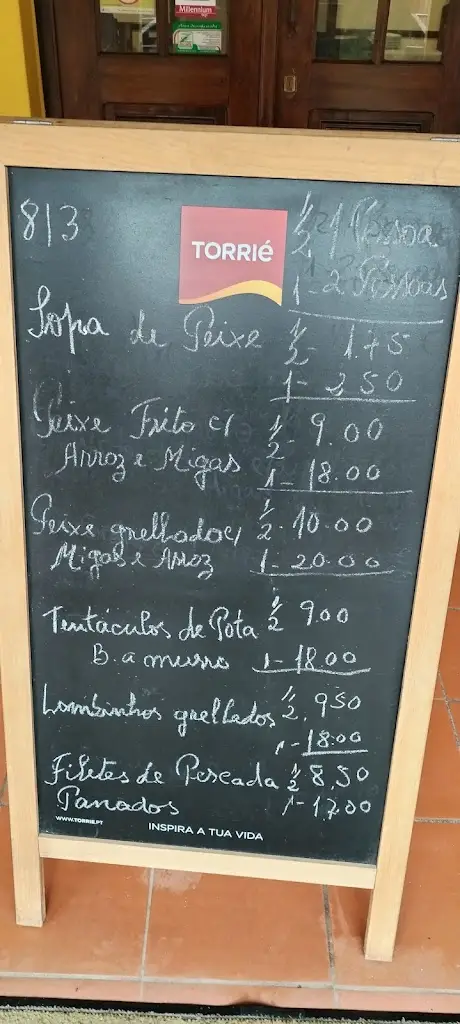 Millennium
8/3
TORRIÉ
1/2 1 Pessoa
1 - 2 Pessoas
Sopa de Peixe 1/2 - 1.75
1 - 3.50
Peixe Frito c/ 1/2 - 9.00
Arroz e Migas 1 - 18.00
Peixe grelhado c/ 1/2 - 10.00
Migas e Arroz 1 - 20.00
Tentáculos de Pota 1/2 9.00
B. a murro 1 - 18.00
Lombinhos grelhados 1/2. 9.50
1 - 18.00
Filetes de Pescada 1/2 8,50
Panados 1 - 17,00
WWW.TORRIE.PT
INSPIRA A TUA VIDA